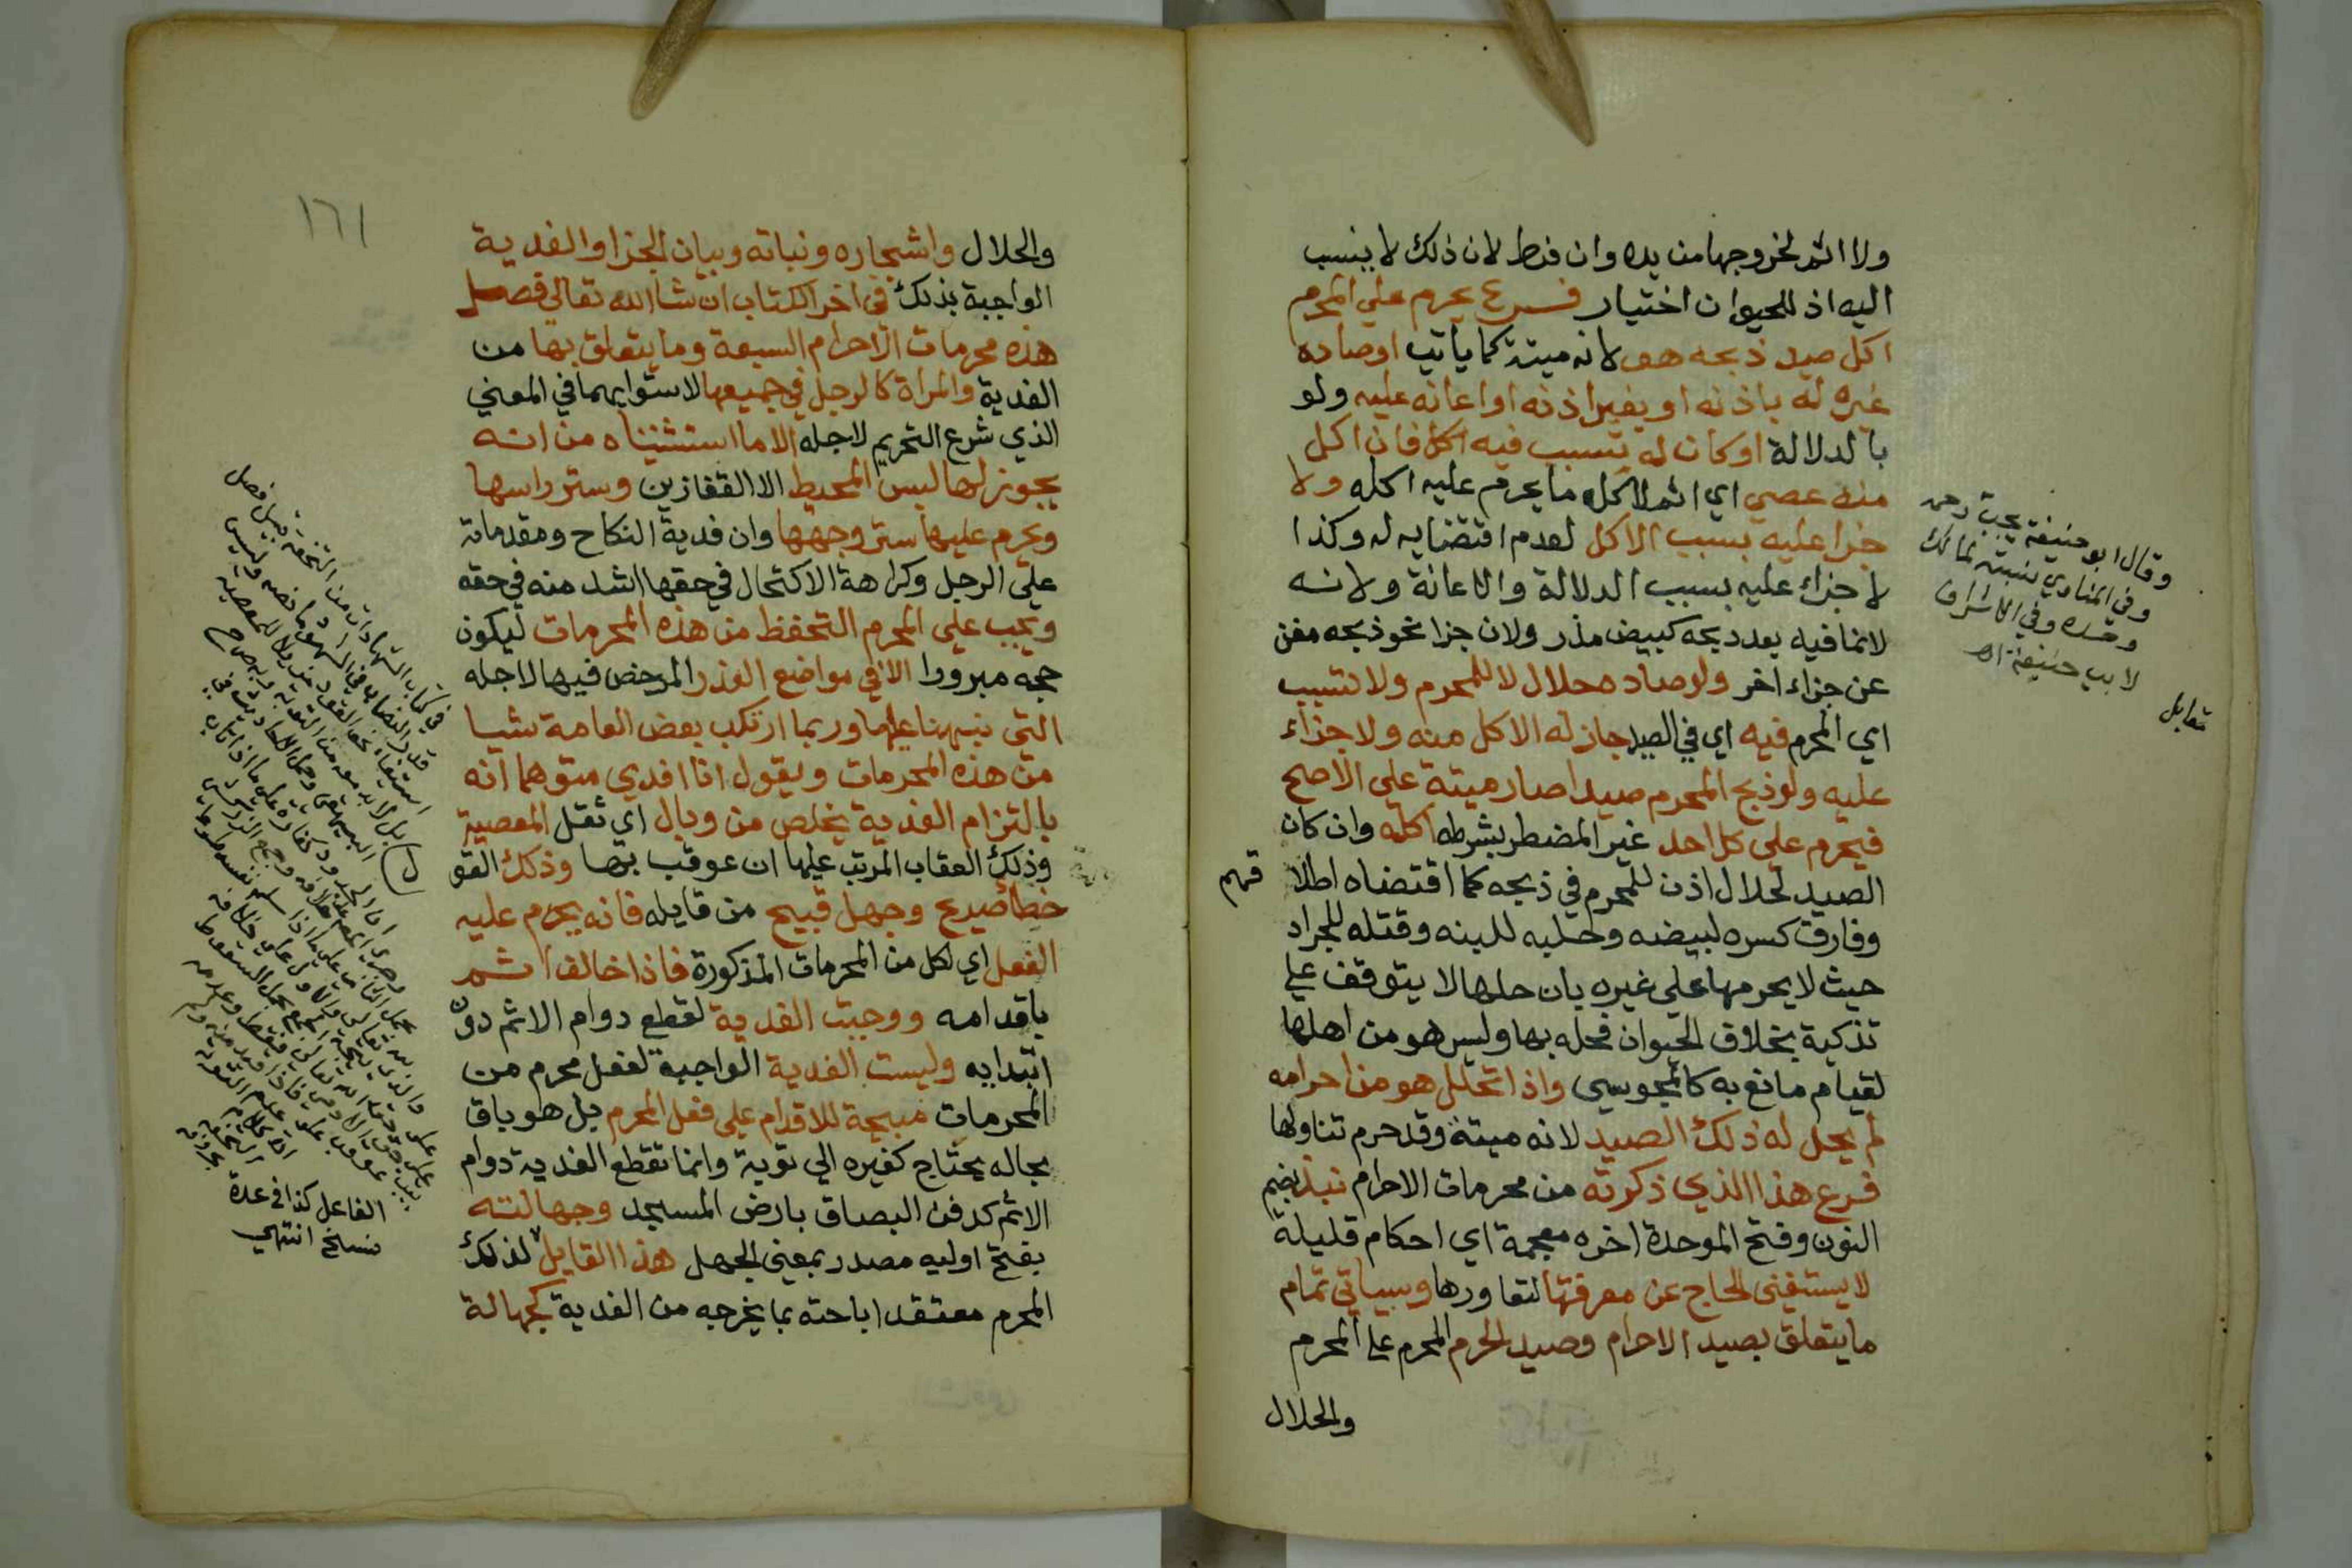 ولا اثم لخروجها من يده وان فرط لان ذلك لا ينسب
اليه اذ للحيوان اختيار فرع يحرم علي المحرم
اكل صيد ذبحه هو لانه ميتة كما ياتي او صاده
غيره له باذنه او بغير اذنه او اعانه عليه ولو
بالدلالة او كان له تسبب فيه اكل فان اكل
منه عصي اي اثم لاكله ما يحرم عليه اكله ولا
جزا عليه بسبب الاكل لعدم اقتضايه له وكذا
لا جزاء عليه بسبب الدلالة والاعانة ولانه
لانما فيه بعد ذبحه كبيض مذر ولان جزا نحو ذبحه مغن
عن جزاء اخر ولو صاده حلال لا للمحرم ولا تسبب
اي المحرم فيه اي في الصيد جاز له الاكل منه ولا جزاء
عليه ولو ذبح المحرم صيدا صار ميتة علي الاصح
فيحرم علي كل احد غير المضطر بشرطه اكله وان كان
الصيد لحلال اذن للمحرم في ذبحه كما اقتضاه اطلا قهم
وفارق كسره لبيضه وحلبه للبنه وقتله للجراد
حيث لا يحرمها علي غيره بان حلها لا يتوقف علي
تذكية بخلاف الحيوان فحله بها وليس هو من اهلها
لقيام مانع به كالمجوسي واذا تحلل هو من احرامه
لم يحل له ذلك الصيد لانه ميتة وقد حرم تناولها
فرع هذا الذي ذكرته من محرمات الاحرام نبذ بضم
النون وفتح الموحدة اخره معجمة اي احكام قليلة
لا يستغني الحاج عن معرفتها لتعاورها وسياتي تمام
ما يتعلق بصيد الاحرام وصيد الحرم المحرم علي المحرم
والحلال
وقال ابو حنيفة يجب
وفي المناوي نسبته لمالك
وحده وفي الاشراف
لابي حنيفة اه
مقابل
١٦١
والحلال واشجاره ونباته وبيان الجزا والفدية
الواجبة بذلك في اخر الكتاب ان شا الله تعالي فصل
هذه محرمات الاحرام السبعة وما يتعلق بها من
الفدية والمراة كالرجل في جميعها لاستوايهما في المعني
الذي شرع التحريم لاجله الا ما استثنيناه من انه
يجوز لها لبس المحيط الا القفازين وستر راسها
ويحرم عليها ستر وجهها وان فدية النكاح ومقدماته
علي الرجل وكراهة الاكتحال في حقها اشد منه في حقه
ويجب علي المحرم التحفظ من هذه المحرمات ليكون
حجه مبرورا الا في مواضع العذر المرخص فيها لاجله
التي نبهنا عليها وربما ارتكب بعض العامة شيا
من هذه المحرمات ويقول انا افدي متوهما انه
بالتزام الفدية يخلص من وبال اي ثقل المعصية
وذلك العقاب المرتب عليها ان عوقب بها وذلك القو
ل
خطا صريح وجهل قبيح من قايله فانه يحرم عليه
الفعل اي لكل من المحرمات المذكورة فاذا خالف اثم
باقدامه ووجبت الفدية لقطع دوام الاثم دون
ابتدايه وليست الفدية الواجبة لفعل محرم من
المحرمات مبيحة للاقدام علي فعل المحرم بل هو باق
بحاله يحتاج كغيره الي توبة وانما تقطع الفدية دوام
الاثم كدفن البصاق بارض المسجد وجهالته
بفتح اوليه مصدر بمعني الجهل هذا القايل لذلك
المحرم معتقدا اباحته بما يخرجه من الفدية كجهالة
الفاعل كذا في عدة
نسخ انتهي